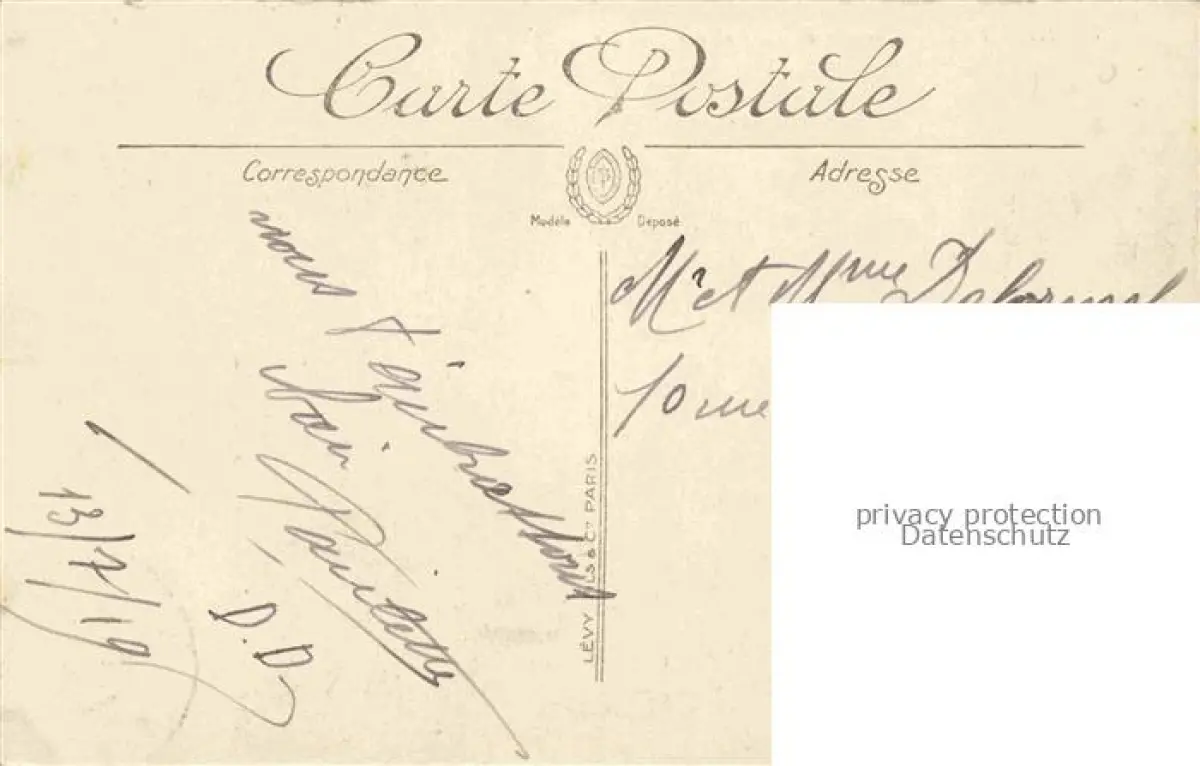 Carte Postale
Correspondance
Adresse
Modèle Déposé
Mr et Mme Delorme
10 rue
nous t'embrassons
bien
Paulette
D. D.
13/7/19
LÉVY FILS & Cie PARIS
privacy protection
Datenschutz